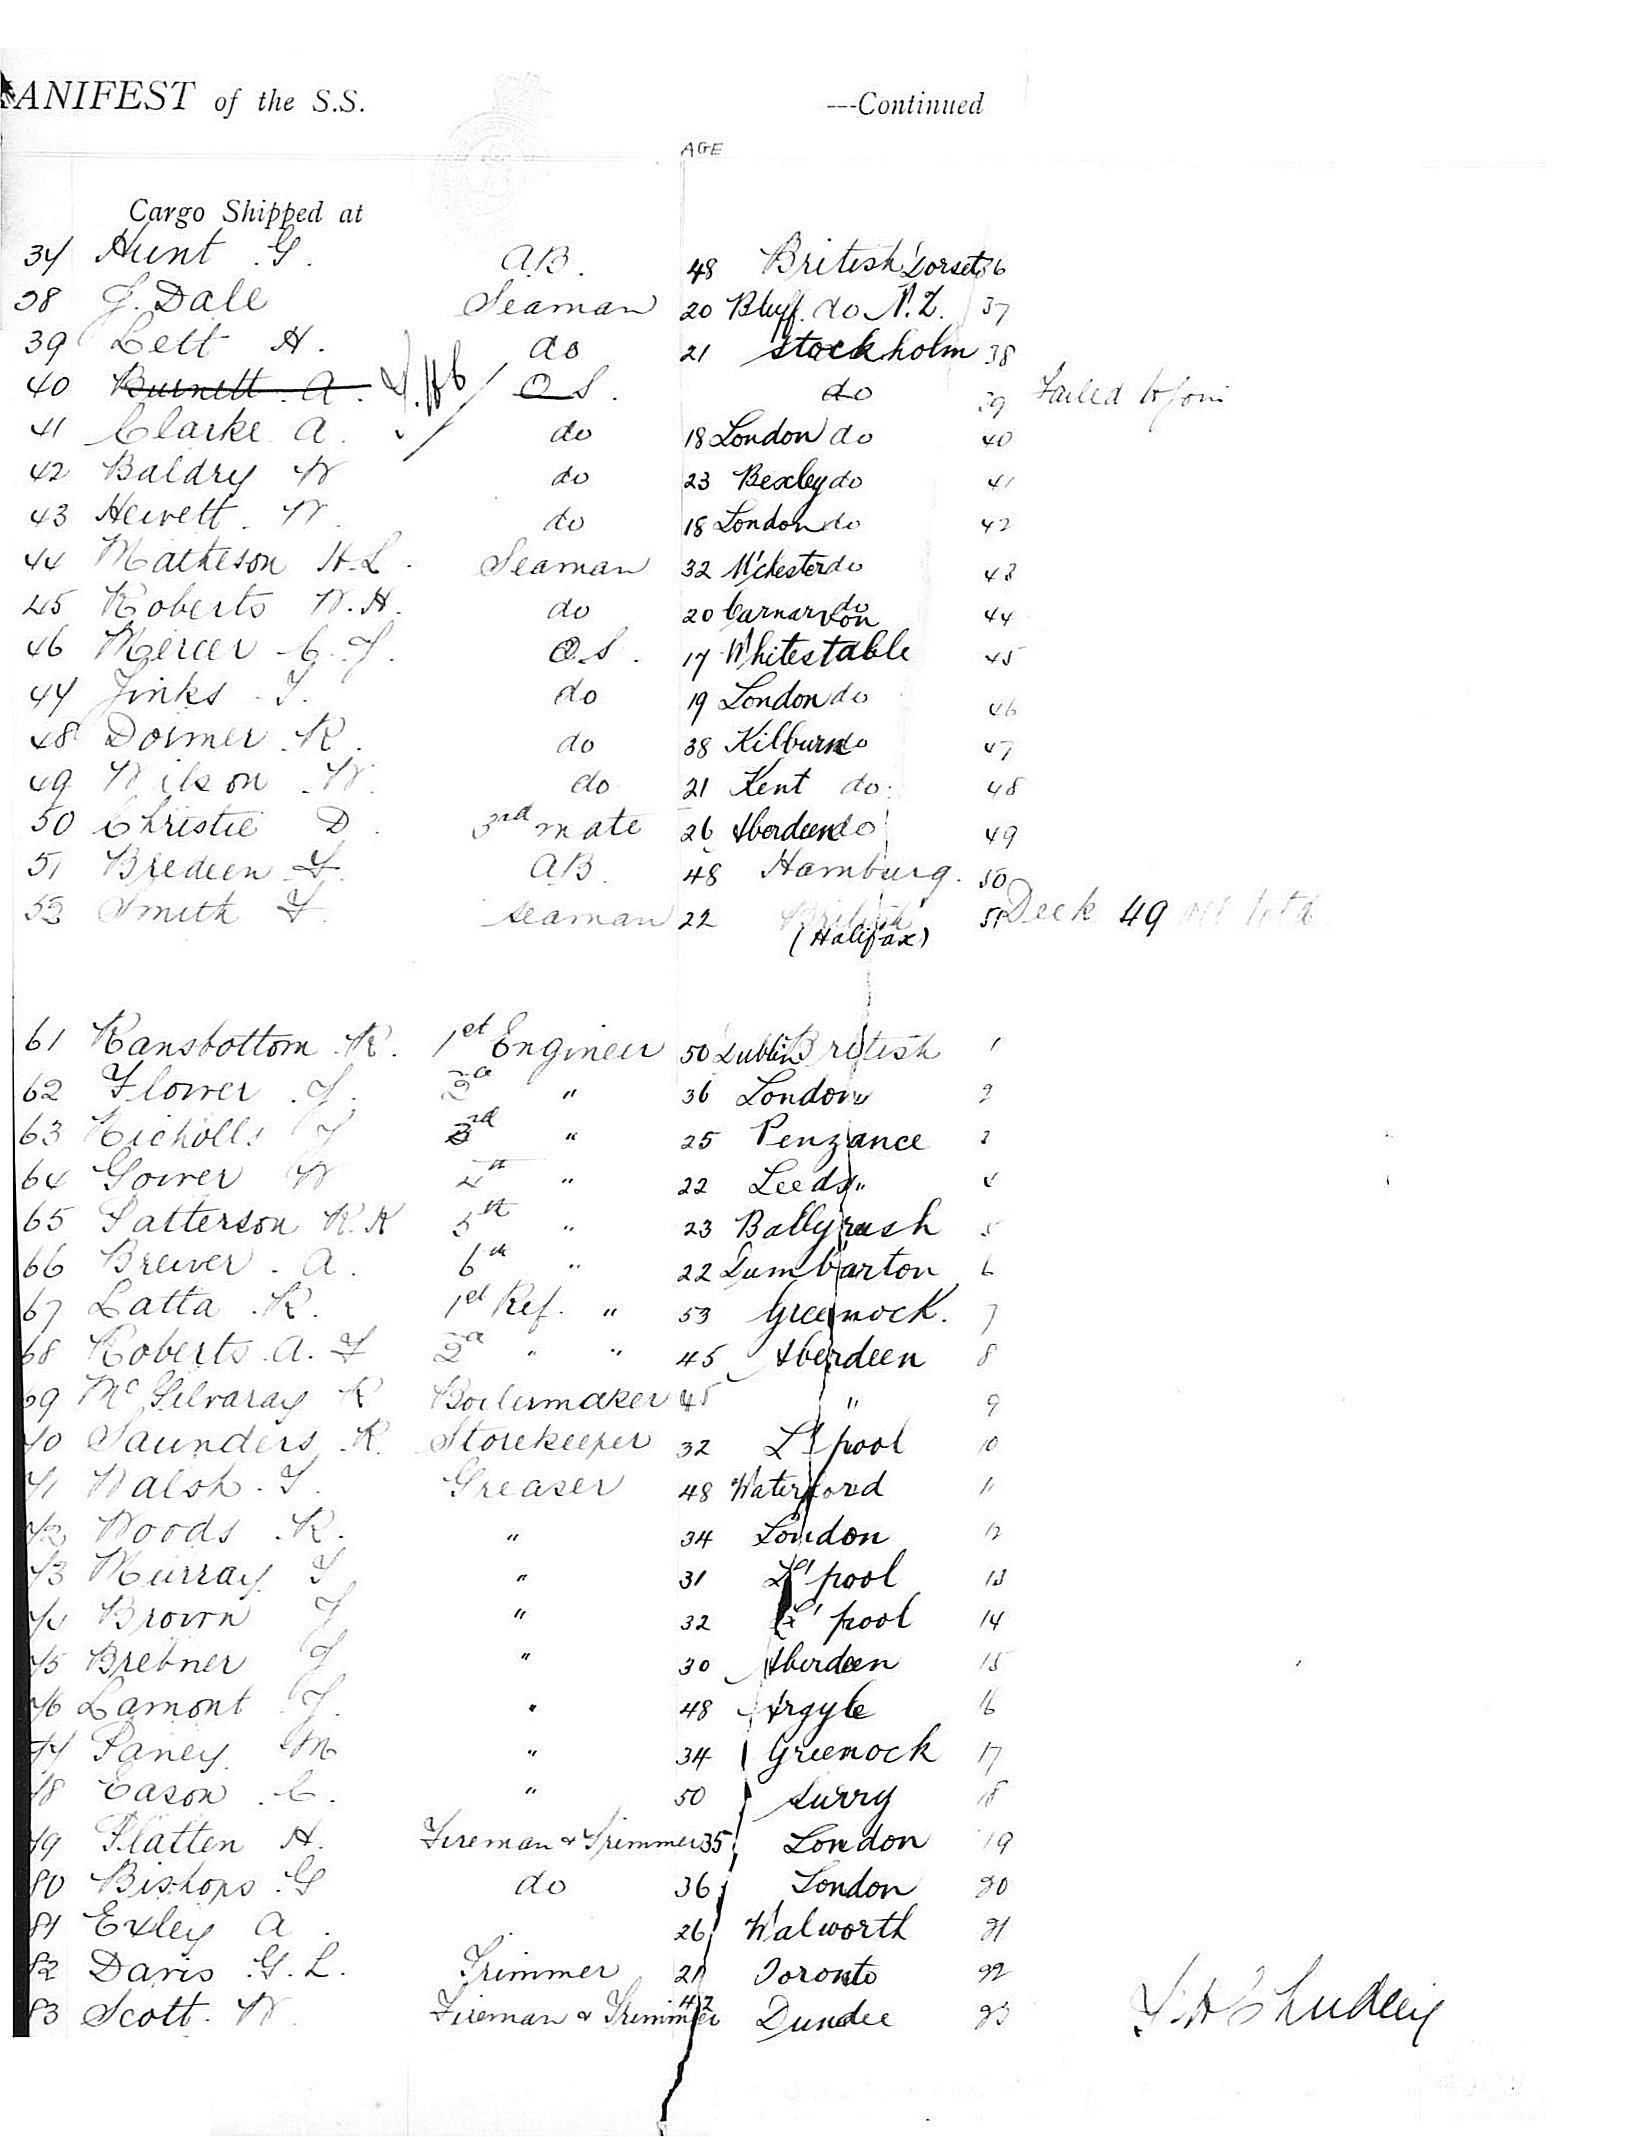 MANIFEST of the S.S. ---Continued
AGE
Cargo Shipped at
37 Hunt G. A.B. 48 British Dorset 36
38 J. Dale Seaman 20 Bluff. do N.Z. 37
39 Lett H. do 21 Stockholm 38
40 Burnett A. O.S. do 39 Failed to join
41 Clarke A. do 18 London do 40
42 Baldry W do 23 Bexley do 41
43 Hewett. W. do 18 London do 42
44 Matheson H.L. Seaman 32 M'chester do 43
45 Roberts W.H. do 20 Carnarvon do 44
46 Mercer C. J. O.S. 17 Whitestable 45
47 Jinks J. do 19 London do 46
48 Dormer R. do 38 Kilburn do 47
49 Wilson W. do 21 Kent do. 48
50 Christie D. 3rd mate 26 Aberdeen do 49
51 Bredeen F. A.B. 48 Hamburg. 50
52 Smith F. Seaman 22 British (Halifax) 51 Deck 49 all told
61 Ransbottom R. 1st Engineer 50 Dublin British 1
62 Flower J. 2nd " 36 London " 2
63 Nicholls J 3rd " 25 Penzance 3
64 Gower W 4th " 22 Leeds " 4
65 Patterson R.K 5th " 23 Ballyrush 5
66 Brewer. A. 6th " 22 Dumbarton 6
67 Latta R. 1st Ref. " 53 Greenock. 7
68 Roberts A. F 2nd " " 45 Aberdeen 8
69 McGilvaray R Boilermaker 45 " 9
70 Saunders R. Storekeeper 32 L'pool 10
71 Walsh. J. Greaser 48 Waterford 11
72 Woods R. " 34 London 12
73 Murray J " 31 L'pool 13
74 Brown J " 32 L'pool 14
75 Brebner J " 30 Aberdeen 15
76 Lamont J. " 48 Argyle 16
77 Paney M " 34 Greenock 17
78 Eason C. " 50 Surry 18
79 Platten H. Fireman & Trimmer 35 London 19
80 Bishops G do 36 London 20
81 Exley A. 26 Walworth 21
82 Davis G.L. Trimmer 21 Toronto 22
83 Scott. W. Fireman & Trimmer 42 Dundee 23